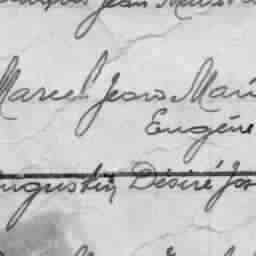 Jean
Marcel Jean Mari
Eugène
ugustin, Désiré Jos